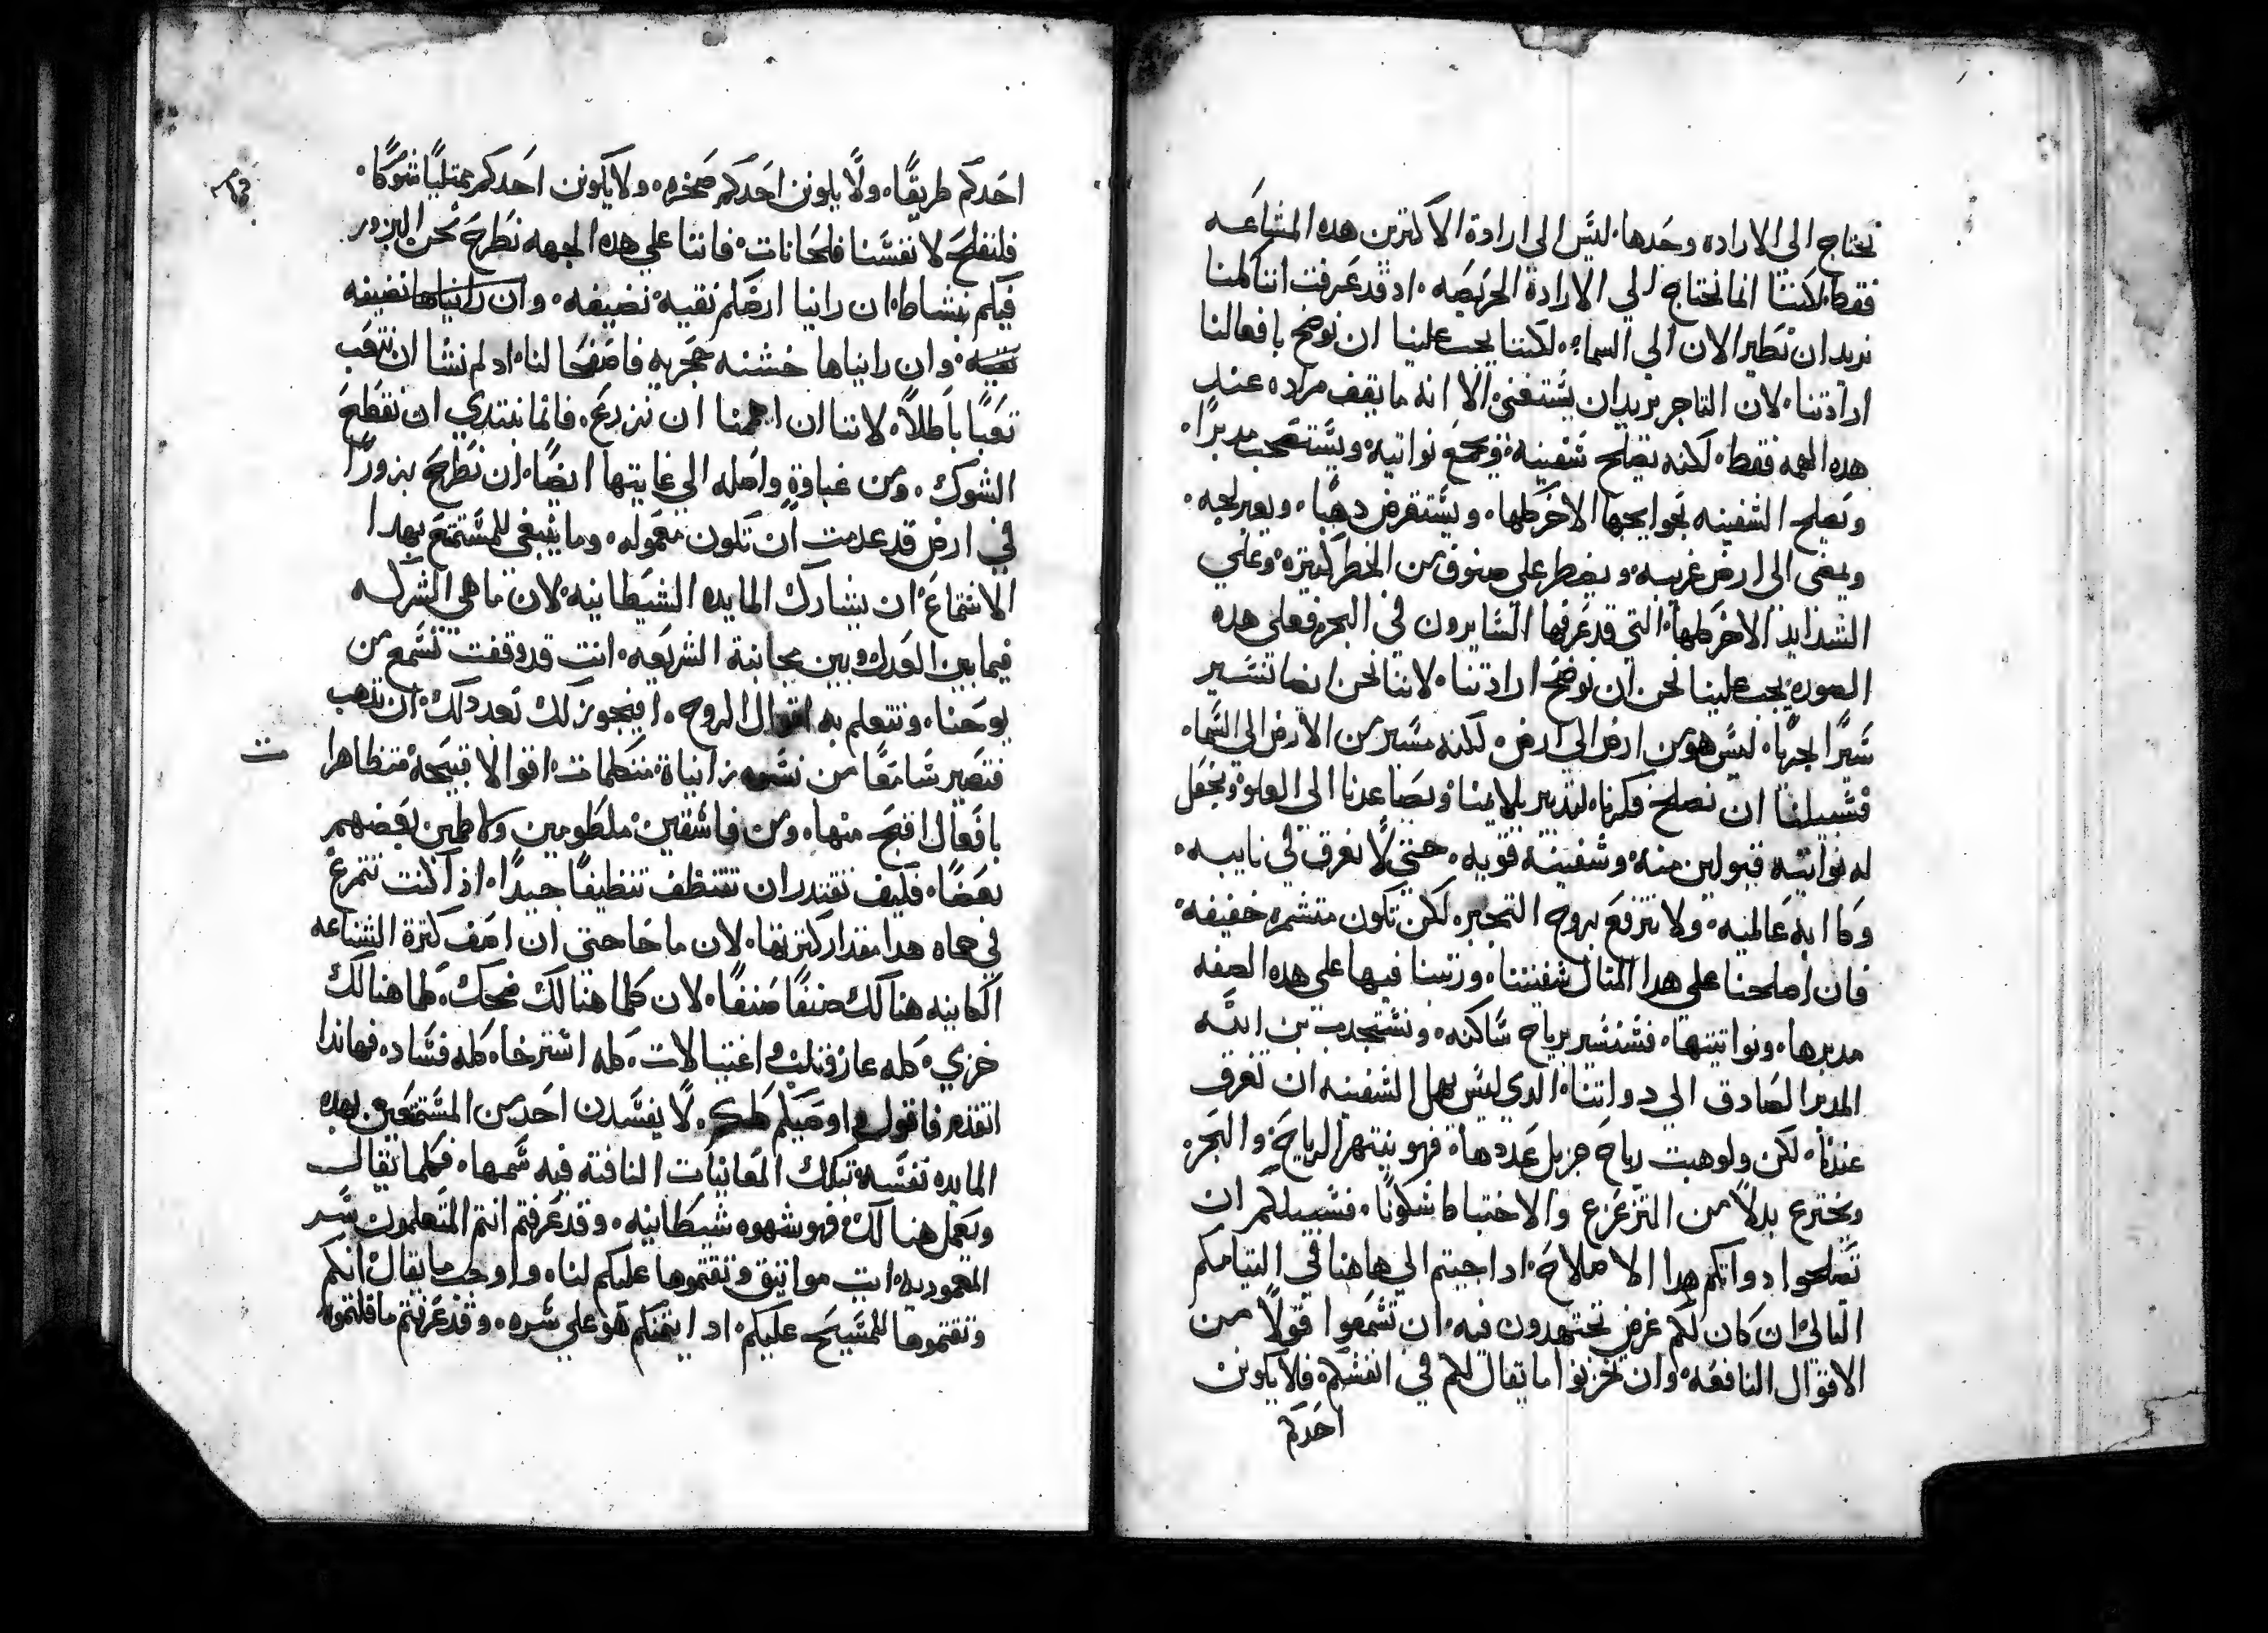 نحتاج الى الاراده وحدها، ليس الى ارادة الاكثرين هده المشاعه
فقط، لاكننا انما نحتاج الي الارادة الحريصه، اد قد عرفت اننا كلنا
نريد ان نطير الان الي السماء، لكننا يجب علينا ان نوضح بافعالنا
ارادتنا، لان التاجر يريد ان يستغني الا انه ما يقف مراده عند
هده الهمه فقط، لكنه يصلح سفينه ويجمع نواتيه ويستصحب مدبرًا،
ويصلح السفينه بحوايجها الاخر كلها، ويستقرض دهبًا، ويعبر لجه،
ويمضي الى ارض غريبه، ويصطبر علي صنوف من الخطر كثيره، وعلي
الشدايد الاخر كلها، التي قد عرفها السايرون في البحر، فعلي هده
الصوره يجب علينا نحن ان نوضح ارادتنا، لاننا نحن ايضا نسير
سيرًا بحريًا، ليس هو من ارض الى ارض، لكنه مسير من الارض الي السما،
فسبيلنا ان نصلح فكرنا، لتدبير يلايمنا، ويصاعدنا الى العلو، ونجعل
له نواتيه قبولين منه، وسفينه قويه، حتي لا نغرق في نايبه،
وكاابه عالميه، ولا نترفع بروح التجبر، لكن نكون متشمره خفيفه،
فان اصلحنا علي هدا المثال سفينتنا، ورتبنا فيها علي هده الصفه
مدبرها، ونواتيتها، فسنسير برياح ساكنه، ونستجدب بن الله
المدبر الصادق الي دواتنا، الدي ليس يهمل السفينه ان تغرق
عندنا، لكن ولو هبت رياح جزيل عددها، فهو ينتهر الرياح، والبحر،
ويخترع بدلاً من التزعزع والاختباط سكونًا، فسبيلكم ان
تصلحوا دواتكم هدا الاصلاح، ادا جيتم الي هاهنا في التيامكم
التالي، ان كان لكم غرض تجتهدون فيه، ان تسمعوا قولاً من
الاقوال النافعه، وان تخزنوا ما يقال لكم في انفسكم، فلا يكونن
احدكم
احدكم طريقًا، ولا يكونن احدكم صخره، ولا يكونن احدكم ممتليًا شوكًا،
فلنفلح لانفسنا فلحانات، فاننا علي هده الجهه نطرح نحن البزور
فيكم بنشاط، ان راينا ارضكم نقيه نضيفه، وان رايناها نضيفه
نقيه، وان رايناها خشنه حجريه فاصفحا لنا، اد لم نشا ان نتعب
تعبًا باطلاً، لاننا ان اهملنا ان نزرع، فانما نبتدي ان نقطع
الشوك، ومن غباوةٍ واصله الي غايتها ايضًا، ان نطرح بزورًا
في ارض قد عدمت ان تكون معموله، وما ينبغي للمستمتع بهدا
الاستماع ان يشارك المايده الشيطانيه، لان ما هي الشركه
فيما بين العدل وبين مجانبة الشريعه، انت قد وقفت تسمع من
يوحنا، وتتعلم به اقوال الروح، افيجوز لك بعد دلك، ان تدهب
فتصير سامعًا من نسوه زانياة، متكلمات اقوالا قبيحة، متظاهرا
بافعال اقبح منها، ومن فاسقين ملطومين ولاطمين بعضهم
بعضًا، فكيف تقتدر ان تتنظف تنظيفًا جيدًا، اذا كنت تتمرغ
في حماه هدا مقدار كثرتها، لان ما حاجتي ان اصف كثرة الشناعه
الكاينه هنالك صنفًا صنفًا، لان كلما هنالك ضحك، كلما هنالك
خزي، كله عار وتلب واغتيالات، كله استرخا، كله فساد، فهاندا
اتقدم فاقول واوصيكم كلكم، لا يفسدن احد من المستمتعين بهده
المايده نفسه بتلك المعاينات النافثه فيه سمها، فكلما يقال
ويعمل هنالك فهو شهوه شيطانيه، وقد عرفتم انتم المتعلمون سر
المعموديه، ايت مواثيق وثقتموها عليكم لنا، واوجب ما يقال انكم
وثقتموها للمسيح عليكم، اد ايتمنكم هو علي سره، وقد عرفتم ما قلتموه